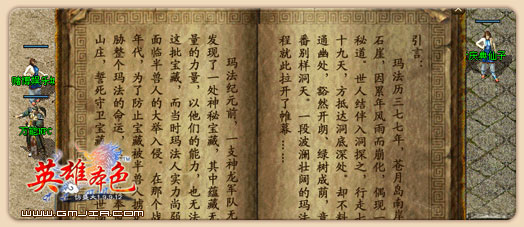 引言：
玛法历三七七年，苍月岛南岸
石崖，因累年风雨而崩化，偶现一
秘道，世人结伴入洞探之，行走七
十九天，方抵达洞底深处，却不料
通幽处，豁然开朗，绿树成荫，竟
番别样洞天。一段波澜壮阔的玛法
程就此拉开了帷幕……
玛法纪元前，一支神龙军队无
发现了一处神秘宝藏，其中蕴藏无
量的力量，以他们的能力，也无法
这批宝藏，而当时玛法人实力尚弱
面临半兽人的大举入侵，在那个战
年代，为了防止宝藏被半兽人掳
胁整个玛法的命运，
山庄，誓死守卫宝藏
庆典仙子
英雄本色
仿盛大1.9.0.12
www.gmjia.com